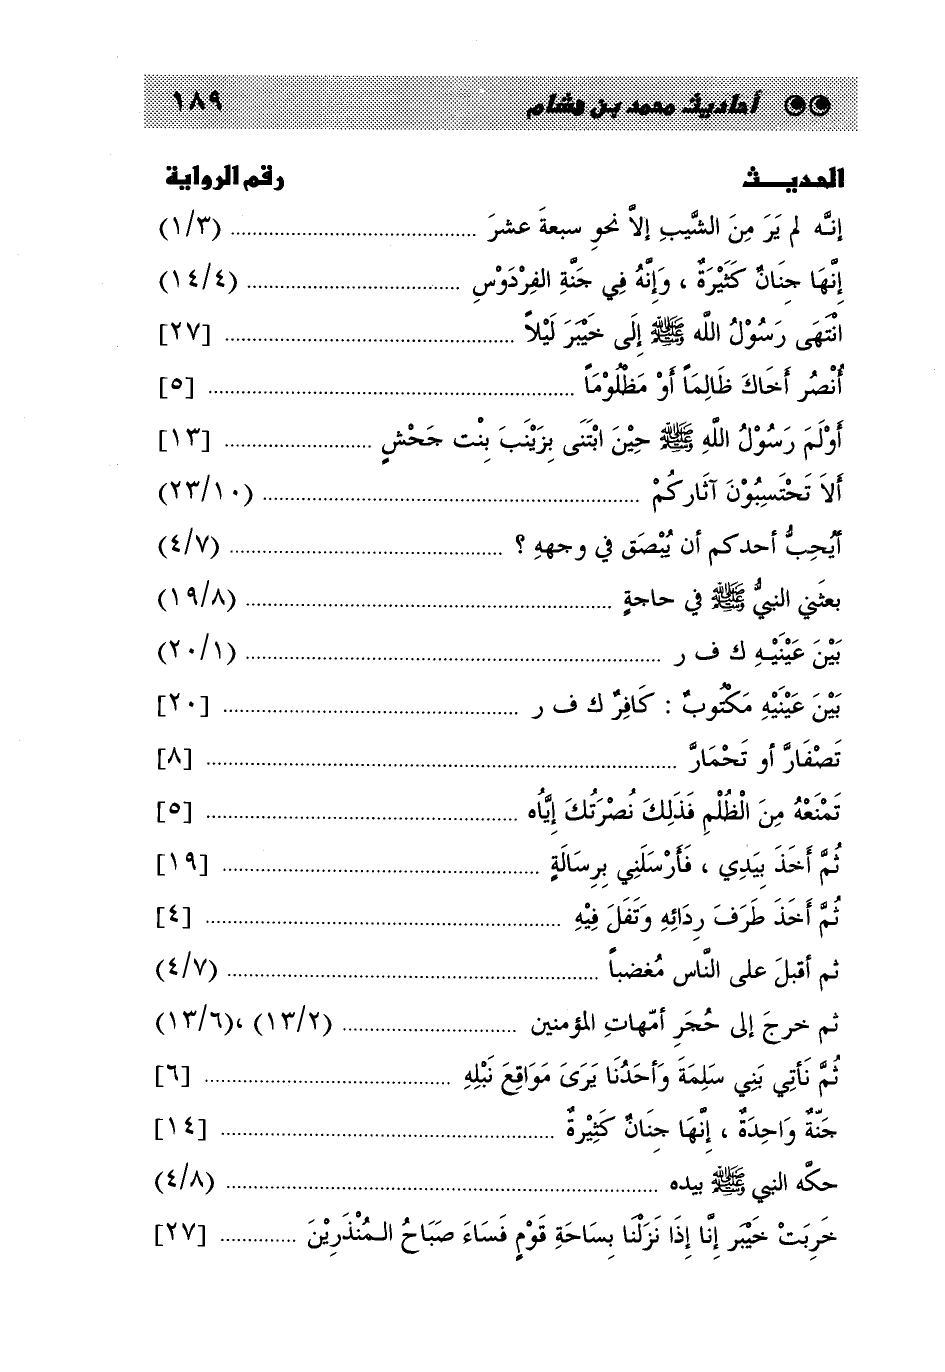 أحاديث محمد بن هشام ١٨٩
الحديــــث رقم الرواية
إنـَّه لم يَرَ مِنَ الشَّيبِ إلاَّ نحوِ سبعةَ عشرَ (١/٣)
إنَّهَا جِنَانٌ كَثَيْرَةٌ ، وَإنَّهُ فِي جَنَّةِ الفِرْدَوْسِ (١٤/٤)
انْتَهَى رَسُوْلُ اللَّه ﷺ إلَى خَيْبَرَ لَيْلاً [٢٧]
أُنْصُر أَخَاكَ ظَالِمَاً أَوْ مَظْلُوْمَاً [٥]
أَوْلَمَ رَسُوْلُ اللَّهِ ﷺ حِيْنَ ابْتَنَى بِزَيْنَبَ بِنْت جَحْشٍ [١٣]
أَلاَ تَحْتَسِبُوْنَ آثَاركُمْ (٢٣/١٠)
أيُحِبُّ أحدكم أن يُبْصَق في وجههِ ؟ (٤/٧)
بعثَني النبيُّ ﷺ في حاجةٍ (١٩/٨)
بَيْنَ عَيْنَيْـهِ ك ف ر (٢٠/١)
بَيْنَ عَيْنَيْهِ مَكْتُوبٌ : كَافِرٌ ك ف ر [٢٠]
تَصْفَارَّ أو تَحْمَارَّ [٨]
تَمْنَعْهُ مِنَ الْظُلْمِ فَذَلِكَ نُصْرَتُكَ إيَّاه [٥]
ثُمَّ أَخَذَ بِيَدِي ، فَأَرْسَلَنِي بِرِسَالَةٍ [١٩]
ثُمَّ أَخَذَ طَرَفَ رِدَائِهِ وَتَفَلَ فِيْهِ [٤]
ثم أقبلَ على النَّاس مُغضباً (٤/٧)
ثم خرجَ إلى حُجَرِ أمّهاتِ المؤمنين (١٣/٢) ،(١٣/٦)
ثُمَّ نَأتِي بَنِي سَلِمَةَ وَأحَدُنَا يَرَىَ مَوَاقِعَ نَبْلِهِ [٦]
جَنّةٌ وَاحِدَةٌ ، إنَّهَا جِنَانٌ كَثِيْرةٌ [١٤]
حكَّه النبي ﷺ بيده (٤/٨)
خَرِبَتْ خَيْبَر إنَّا إذَا نَزَلْنَا بِسَاحَةِ قَوْمٍ فَسَاءَ صَبَاحُ الـمُنْذَرِيْنَ [٢٧]